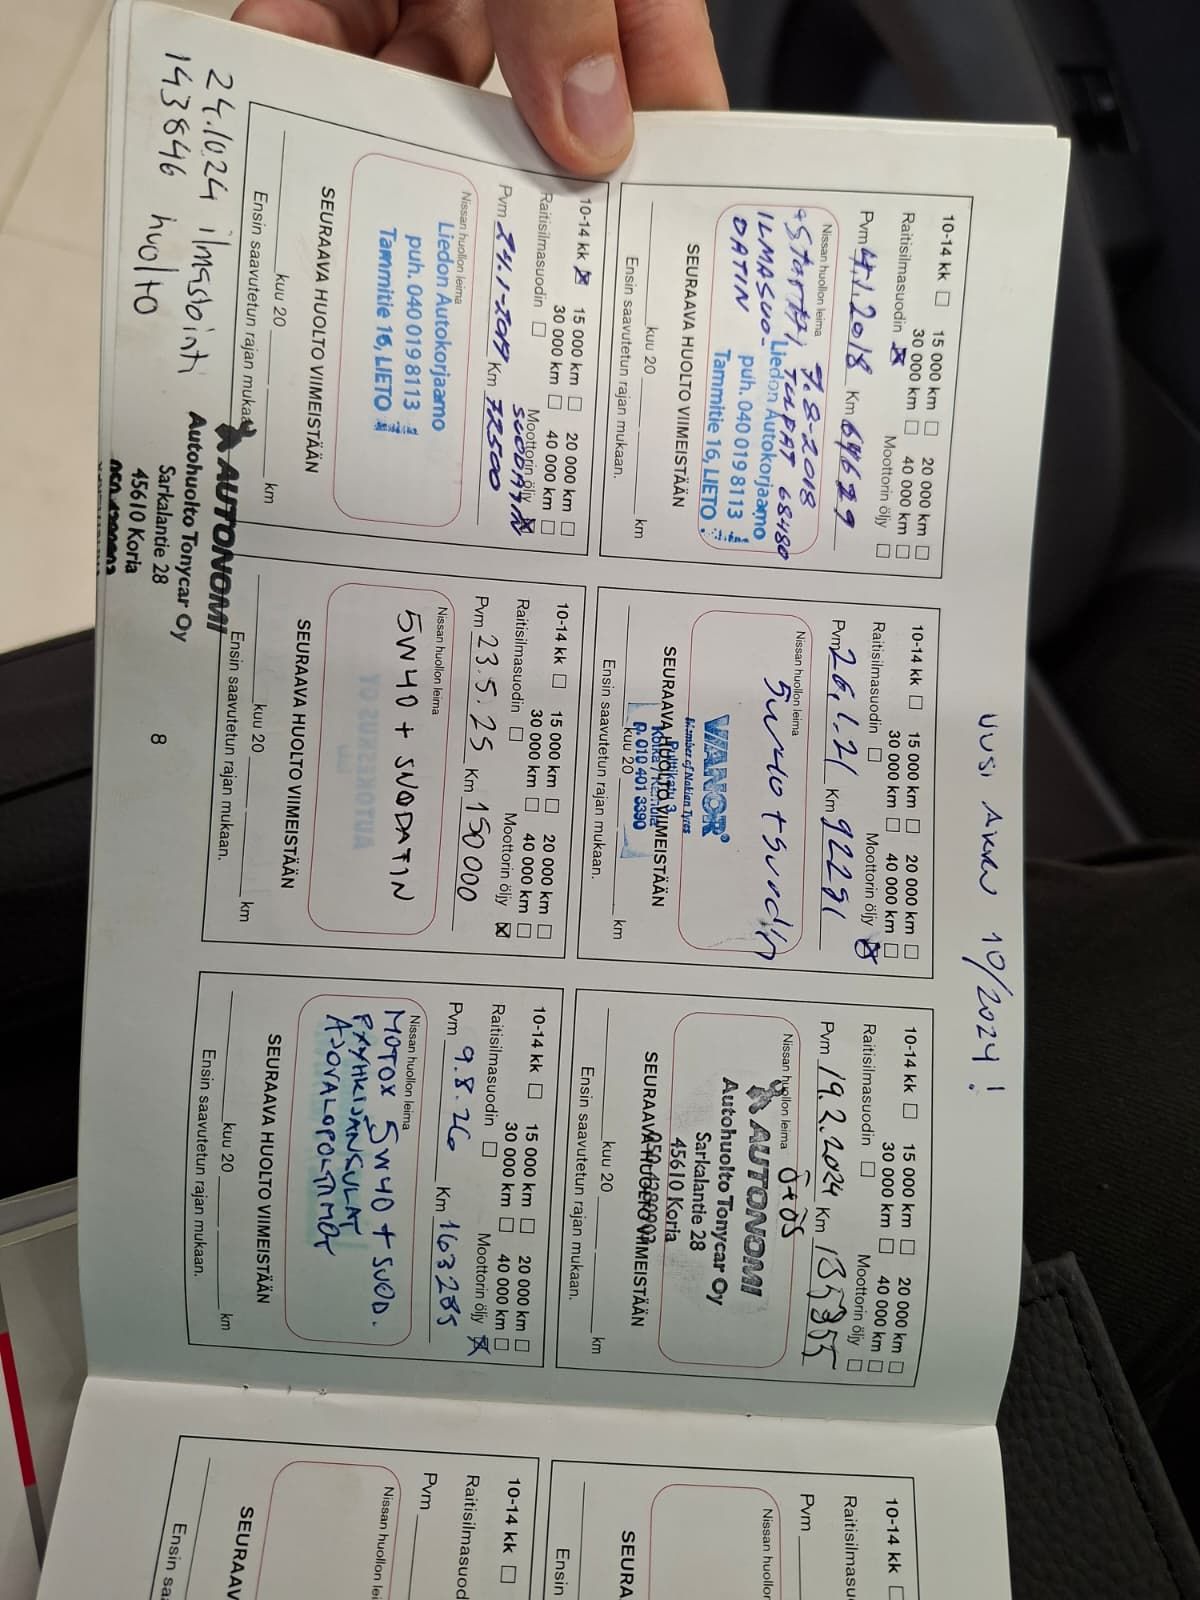 UUSI AKKU 10/2024!
10-14 kk 15 000 km 20 000 km
30 000 km 40 000 km
Raitisilmasuodin Moottorin öljy
Pvm 4.1.2018 Km 64629
Nissan huollon leima 7.8-2018
+START TULPAT 68480
ILMASUO-
DATIN
Liedon Autokorjaamo
puh. 040 019 8113
Tammitie 16, LIETO
SEURAAVA HUOLTO VIIMEISTÄÄN
kuu 20 km
Ensin saavutetun rajan mukaan.
10-14 kk 15 000 km 20 000 km
30 000 km 40 000 km
Raitisilmasuodin Moottorin öljy
Pvm 26.1.21 Km 92291
Nissan huollon leima
5w40 + suod
VIANOR
Member of Nokian Tyres
p. 010 401 3390
SEURAAVA HUOLTO VIIMEISTÄÄN
kuu 20 km
Ensin saavutetun rajan mukaan.
10-14 kk 15 000 km 20 000 km
30 000 km 40 000 km
Raitisilmasuodin Moottorin öljy
Pvm 19.2.2024 Km 135955
Nissan huollon leima ö+ös
AUTONOMI
Autohuolto Tonycar Oy
Sarkalantie 28
45610 Koria
SEURAAVA HUOLTO VIIMEISTÄÄN
kuu 20 km
Ensin saavutetun rajan mukaan.
10-14 kk
Raitisilmasu
Pvm
Nissan huollon
SEURA
Ensin
10-14 kk 15 000 km 20 000 km
30 000 km 40 000 km
Raitisilmasuodin Moottorin öljy
SUODATIN
Pvm 24.1-2019 Km 72500
Nissan huollon leima
Liedon Autokorjaamo
puh. 040 019 8113
Tammitie 16, LIETO
SEURAAVA HUOLTO VIIMEISTÄÄN
kuu 20 km
Ensin saavutetun rajan mukaa
10-14 kk 15 000 km 20 000 km
30 000 km 40 000 km
Raitisilmasuodin Moottorin öljy
Pvm 23.5.25 Km 150000
Nissan huollon leima
5W40 + SUODATIN
SEURAAVA HUOLTO VIIMEISTÄÄN
kuu 20 km
Ensin saavutetun rajan mukaan.
10-14 kk 15 000 km 20 000 km
30 000 km 40 000 km
Raitisilmasuodin Moottorin öljy
Pvm 9.8.26 Km 163285
Nissan huollon leima
MOTOX 5W40 + SUOD.
PYYHKIJÄNSULAT
AJOVALOPOLTIMOT
SEURAAVA HUOLTO VIIMEISTÄÄN
kuu 20 km
Ensin saavutetun rajan mukaan.
10-14 kk
Raitisilmasuod
Pvm
Nissan huollon lei
SEURAAV
Ensin saa
24.10.24 ilmastointi
143846 huolto
AUTONOMI
Autohuolto Tonycar Oy
Sarkalantie 28
45610 Koria
8